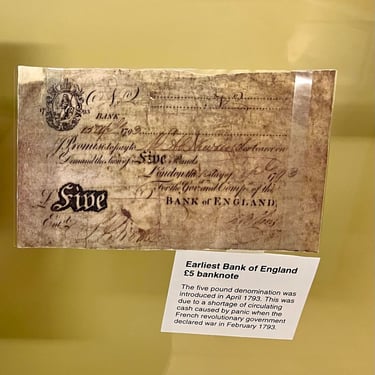 No
BANK
1793
I Promise to pay to
or bearer on
Demand the Sum of Five Pounds
London the day of 1793
For the Gov.r and Comp.a of the
£ Five
BANK of ENGLAND.
Ent.d
Earliest Bank of England
£5 banknote
The five pound denomination was
introduced in April 1793. This was
due to a shortage of circulating
cash caused by panic when the
French revolutionary government
declared war in February 1793.